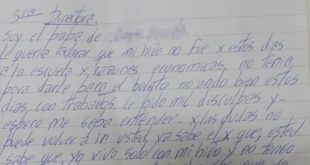 Sra Directora.
Soy el papá de
le queria Aclarar que mi hijo no fue x estos dias
a la escuela x razones economicas, no tenia
para darle para el bulgto, no ando bien estos
dias, con trabajos. Le pido mil disculpas y
espero me sepa entender. x las dudas no
puede volver a ir usted ya sabe el x que, usted
sabe que, yo vivo solo con mi hijo y no tengo